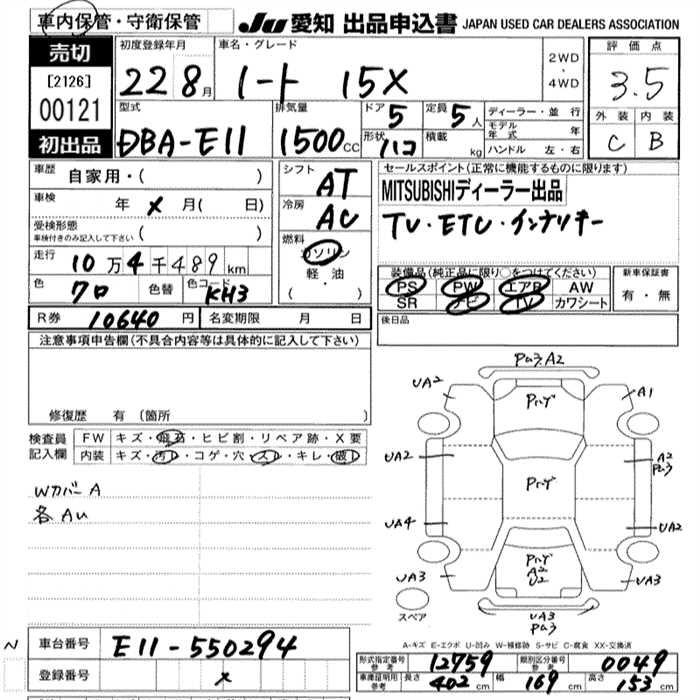 車内保管・守衛保管
Ju 愛知 出品申込書 JAPAN USED CAR DEALERS ASSOCIATION
売切
[2126]
00121
初出品
初度登録年月
22 8月
車名・グレード
ノート 15X
2WD
・
4WD
評価点
3.5
外装 内装
C B
型式
DBA-E11
排気量
1500cc
ドア 5
形状 ハコ
定員 5人
積載 kg
ディーラー・並行
モデル年式 年
ハンドル 左・右
車歴 自家用・( )
車検 年 × 月( 日)
受検形態
車検付きのみ記入して下さい ( )
走行 10万4千489km
色 クロ 色替 色コード KH3
シフト AT
冷房 AC
燃料
ガソリン
軽・油
( ・ )
セールスポイント(正常に機能するものに限ります)
MITSUBISHIディーラー出品
TV・ETC・インテリキー
装備品(純正品に限り○をつけてください)
PS PW エアB AW
SR ナビ TV カワシート
新車保証書
有・無
R券 10640円 名変期限 月 日
後日品
注意事項申告欄(不具合内容等は具体的に記入して下さい)
修復歴 有 (箇所 )
検査員記入欄
FW キズ・飛石・ヒビ割・リペア跡・X要
内装 キズ・汚レ・コゲ・穴・スレ・キレ・破レ
Wカバー A
各 AU
UA2
A1
UA2
A2
UA4
UA2
UA3
A2
U2
UA3
UA3
スペア
A-キズ E-エクボ U-凹み W-補修跡 S-サビ C-腐食 XX-交換済
N 車台番号 E11-550294
登録番号 ×
形式指定番号 参考 12759 類別区分番号 参考 0049
車庫証明用 参考 長さ 402cm 幅 169cm 高さ 153cm